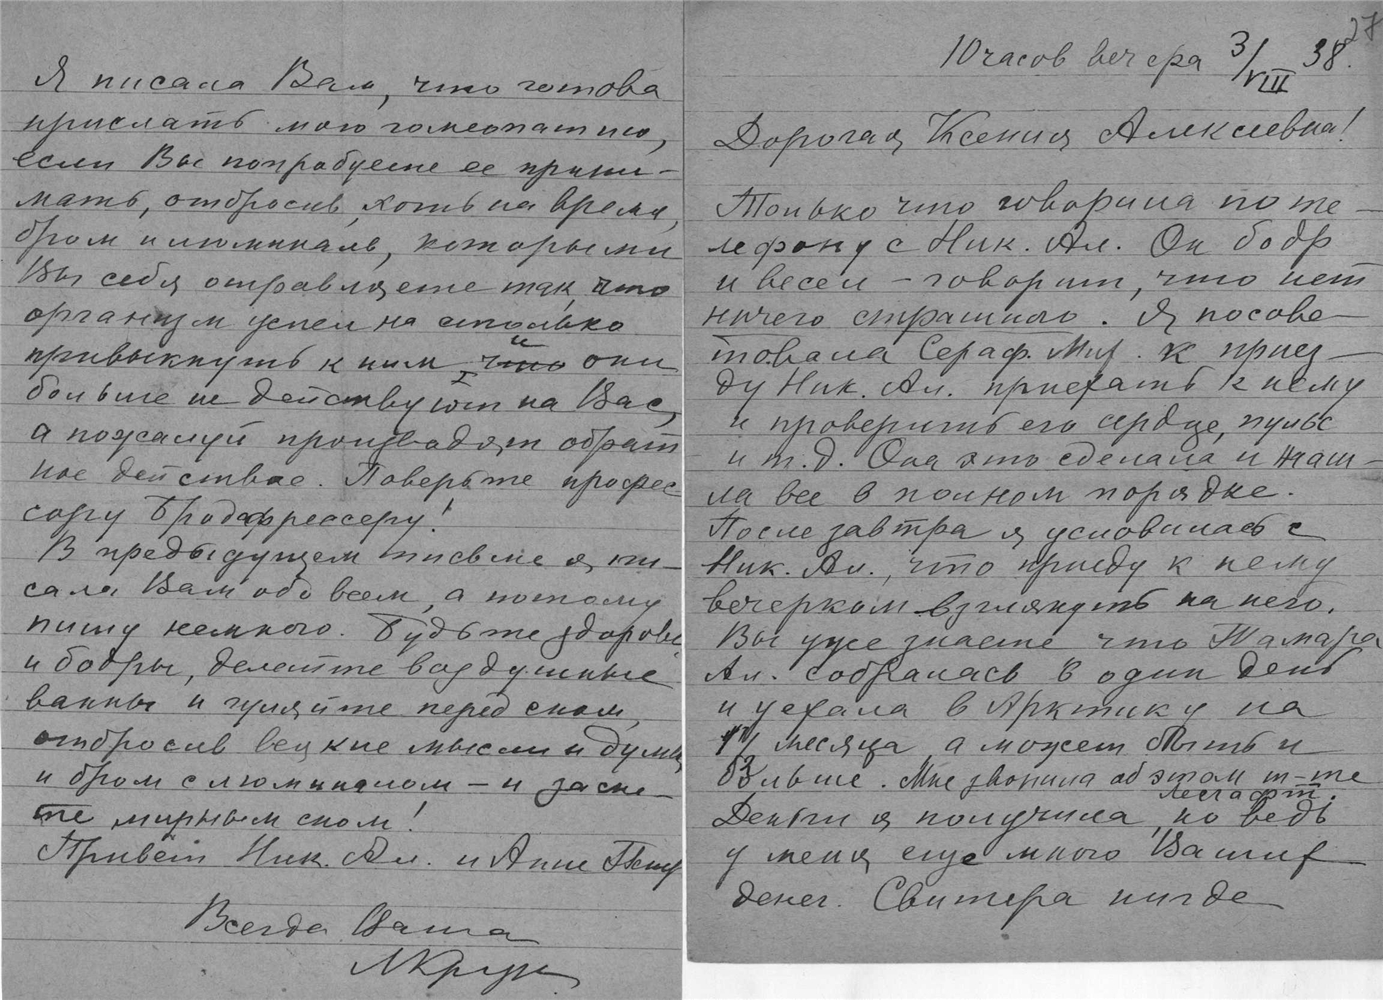 Я писала Вам, что готова
прислать мою гомеопатию,
если Вы попробуете ее прини-
мать, отбросив, хоть на время,
бром и люминаль, которыми
Вы себя отравляете так, что
организм успел на столько
привыкнуть к ним, и они
больше не действуют на Вас,
а пожалуй производят обрат
ное действие. Поверьте профес
сору
В предыдущем письме я пи-
сала Вам обо всем, а потому
пишу немного. Будьте здоровы
и бодры, делайте воздушные
ванны и гуляйте перед сном,
отбросив всякие мысли и думы
и бром с люминалом – и засне-
те мирным сном!
Привет Ник. Ал. и Анне Петр
Всегда Ваша
27
10 часов вечера 3/VIII 38.
Дорогая Ксения Алексеевна!
Только что говорила по те-
лефону с Ник. Ал. Он бодр
и весел – говорит, что нет
ничего страшного. Я посове-
товала Сераф. Мих. к приез-
ду Ник. Ал. приехать к нему
и проверить его сердце, пульс
и т.д. Она это сделала и наш-
ла все в полном порядке.
После завтра я условилась с
Ник. Ал., что приеду к нему
вечерком взглянуть на него.
Вы уже знаете что Тамара
Ал. собралась в один день
и уехала в Арктику на
месяца, а может быть и
больше. Мне звонила об этом m-me
Лесгафт.
Деньги я получила, но ведь
у меня еще много Ваших
денег. Свитера нигде